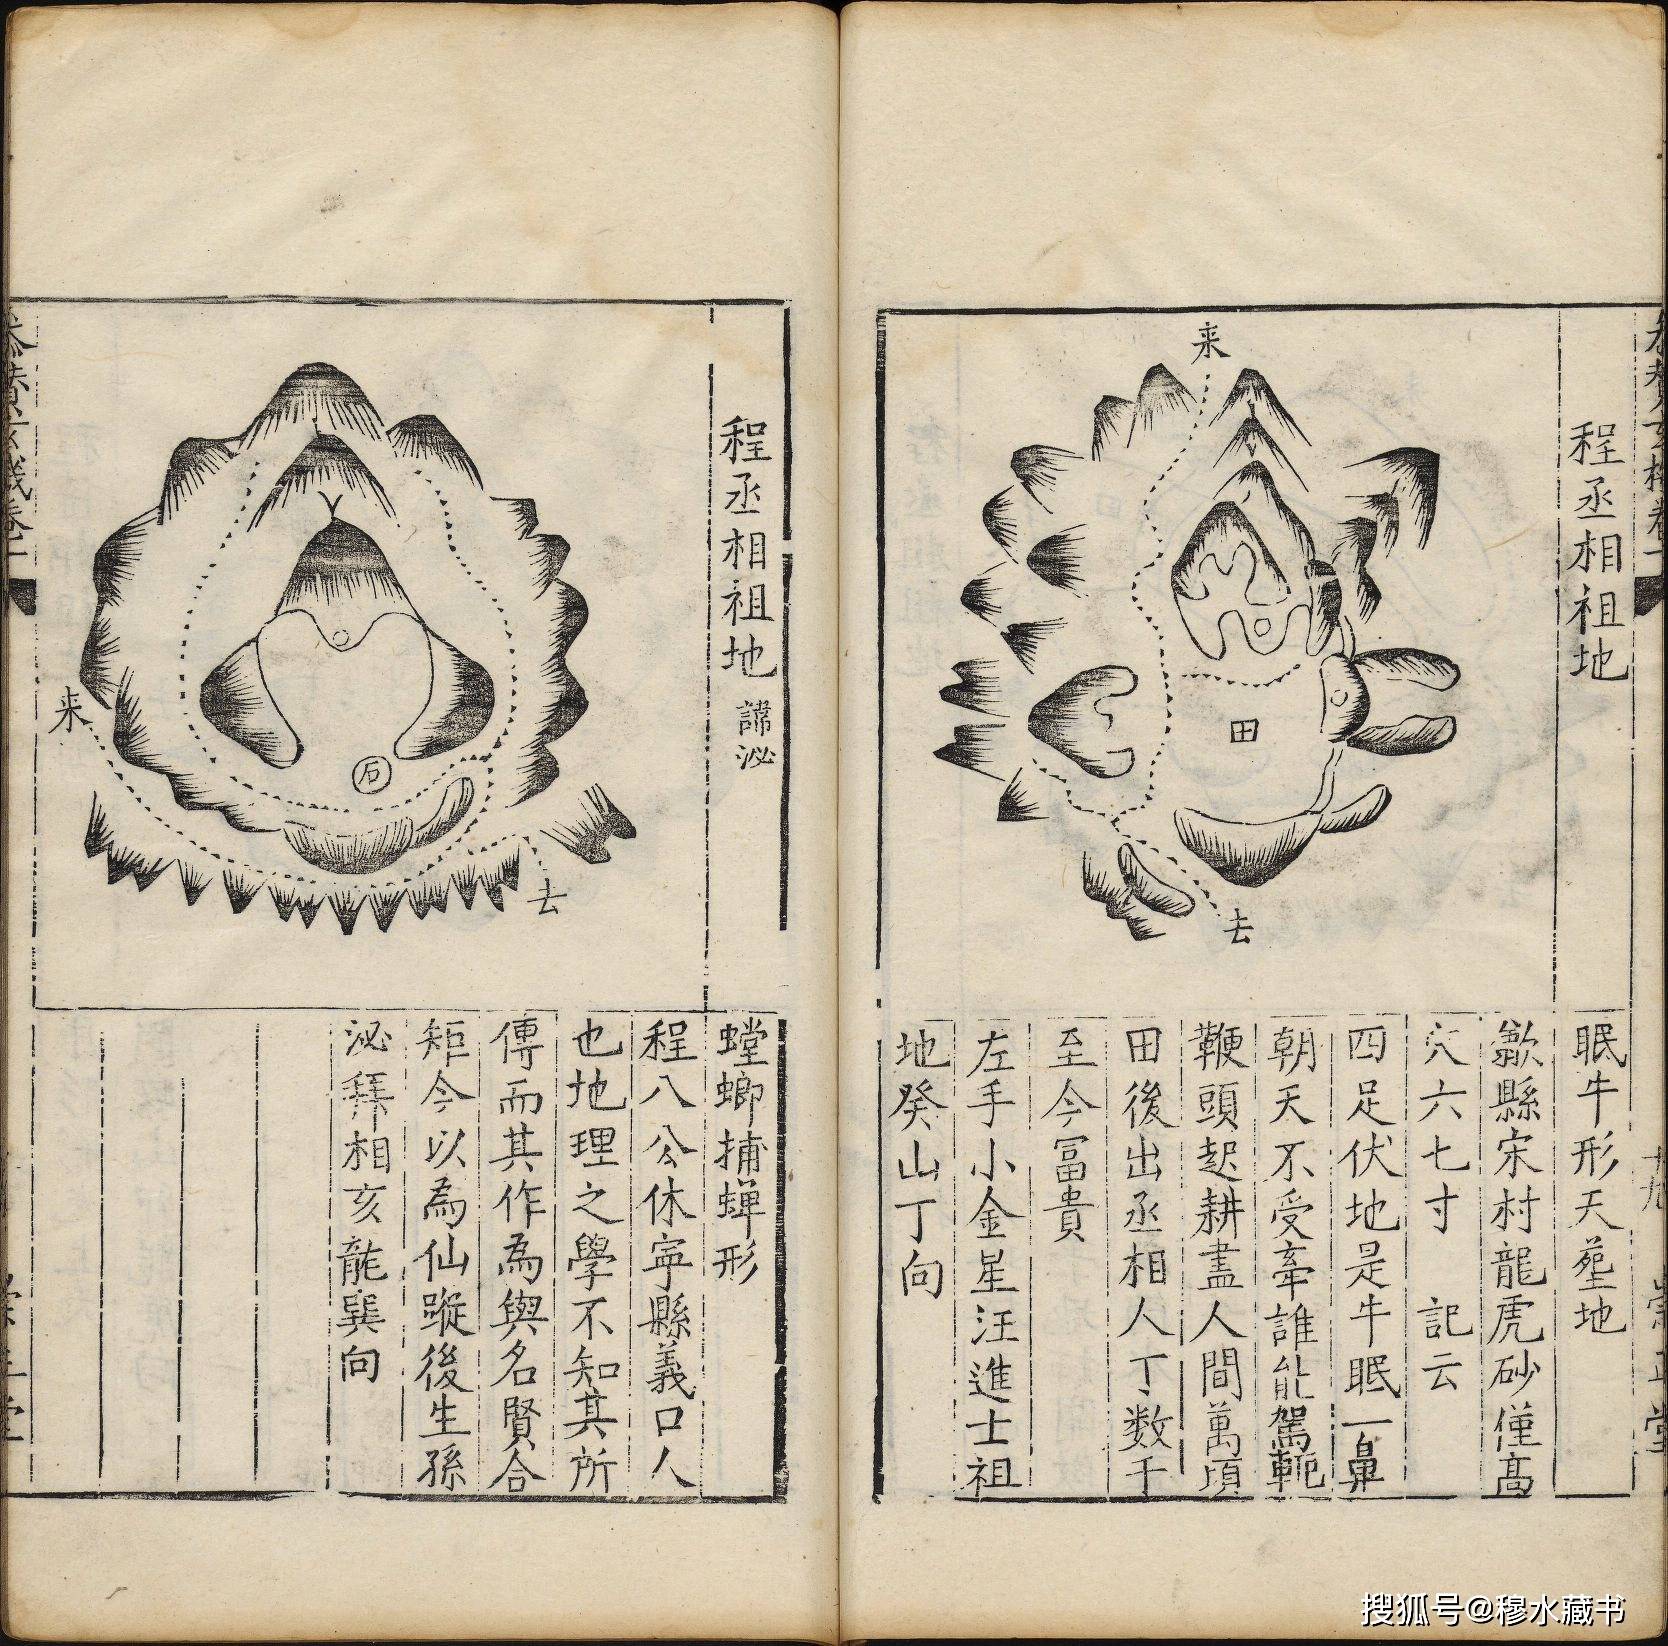 程丞相祖地
来
田
去
眠牛形天塟地
歙縣宋村龍虎砂僅高
穴六七寸　記云
四足伏地是牛眠一鼻
朝天不受牽誰能駕軛
鞭頭起耕盡人間萬頃
田後出丞相人丁数千
至今冨貴
左手小金星汪進士祖
地癸山丁向
程丞相祖地 諱泌
来
石
去
螳螂捕蝉形
程八公休寧縣義口人
也地理之學不知其所
傳而其作為與名賢合
矩今以為仙蹤後生孫
泌拜相亥龍巽向
搜狐号@穆水藏书